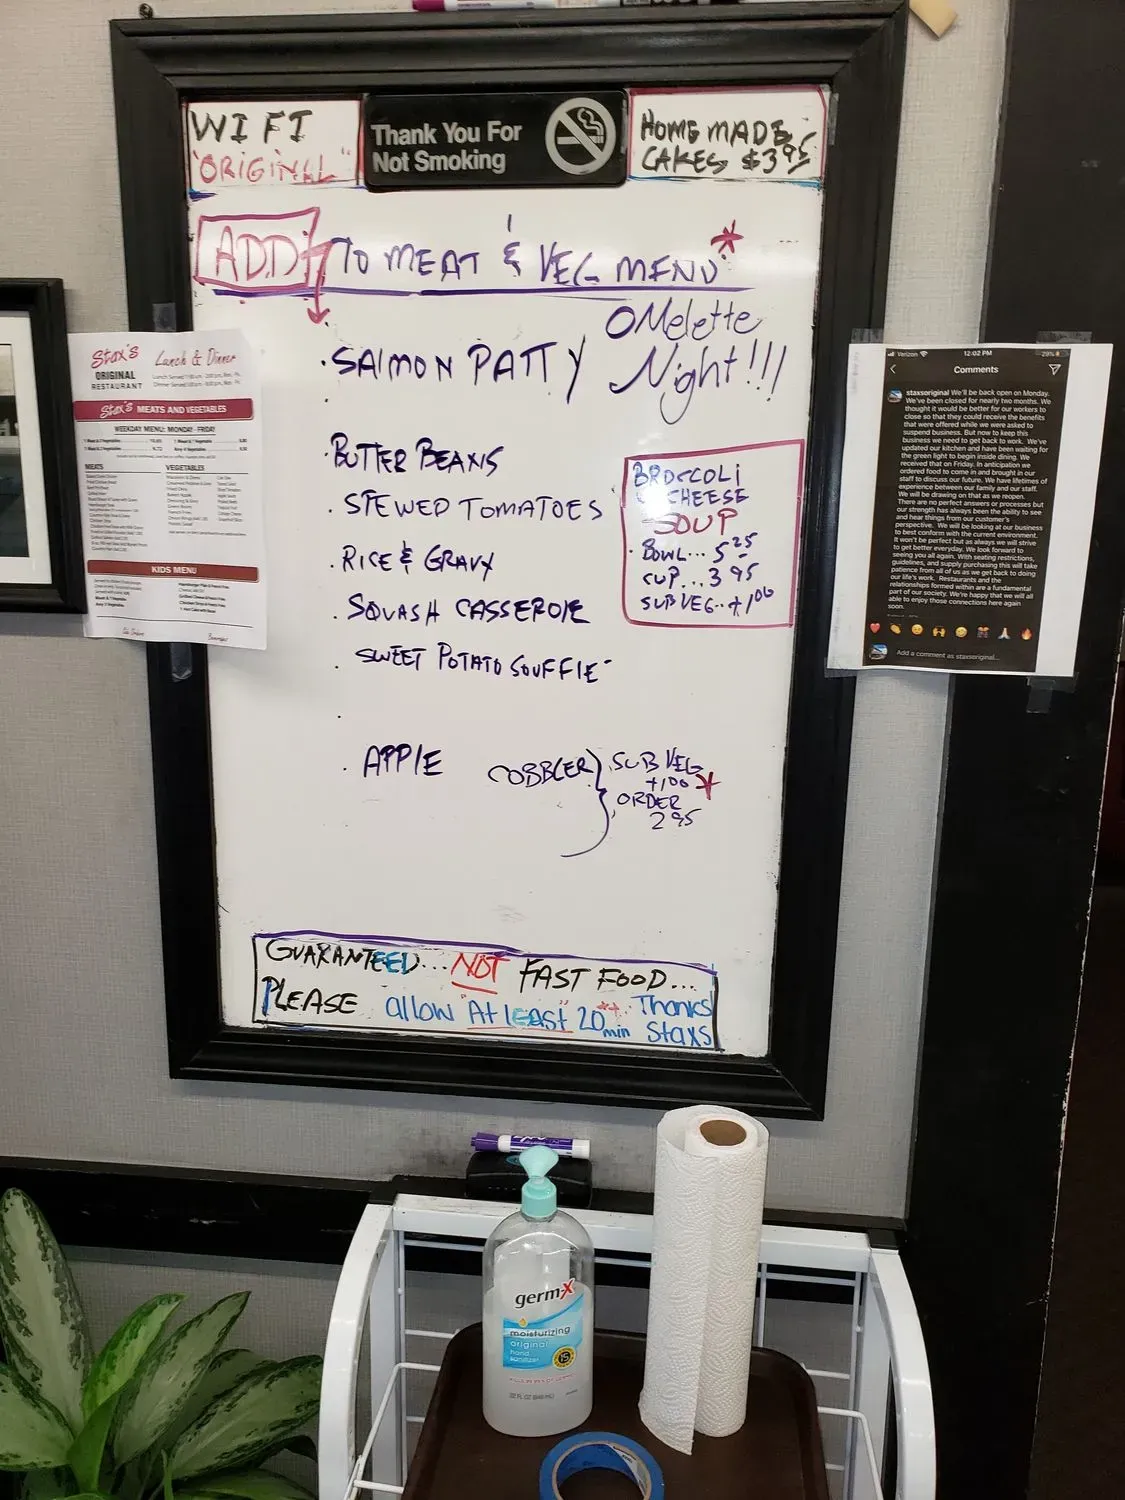 WIFI
"ORIGINAL"
Thank You For
Not Smoking
HOMEMADE
CAKES $3.95
ADD TO MEAT & VEG MENU *
OMelette
Night!!!
· SALMON PATTY
· BUTTER BEANS
· STEWED TOMATOES
· RICE & GRAVY
· SQUASH CASSEROLE
· SWEET POTATO SOUFFLE
· APPLE COBBLER
SUB VEG
+1.00 *
ORDER
2.95
BROCCOLI
& CHEESE
SOUP
· BOWL... 5.25
CUP... 3.95
SUB VEG.. +1.00
GUARANTEED... NOT FAST FOOD...
PLEASE allow "At LEAST" 20 min Thanks
Staxs
Stax's
ORIGINAL
RESTAURANT
Lunch & Dinner
Stax's MEATS AND VEGETABLES
WEEKDAY MENU: MONDAY - FRIDAY
MEATS
VEGETABLES
KIDS MENU
Verizon
12:02 PM
29%
Comments
staxsoriginal We'll be back open on Monday.
We've been closed for nearly two months. We
thought it would be better for our workers to
close so that they could receive the benefits
that were offered while we were asked to
suspend business. But now to keep this
business we need to get back to work. We've
updated our kitchen and have been waiting for
the green light to begin inside dining. We
received that on Friday. In anticipation we
ordered food to come in and brought in our
staff to discuss our future. We have lifetimes of
experience between our family and our staff.
We will be drawing on that as we reopen.
There are no perfect answers or processes but
our strength has always been the ability to see
and hear things from our customer's
perspective. We will be looking at our business
to best conform with the current environment.
It won't be perfect but as always we will strive
to get better everyday. We look forward to
seeing you all again. With seating restrictions,
guidelines, and supply purchasing this will take
patience from all of us as we get back to doing
our life's work. Restaurants and the
relationships formed within are a fundamental
part of our society. We're happy that we will all
able to enjoy those connections here again
soon.
Add a comment as staxsoriginal...
germ-x
moisturizing
original
hand
sanitizer